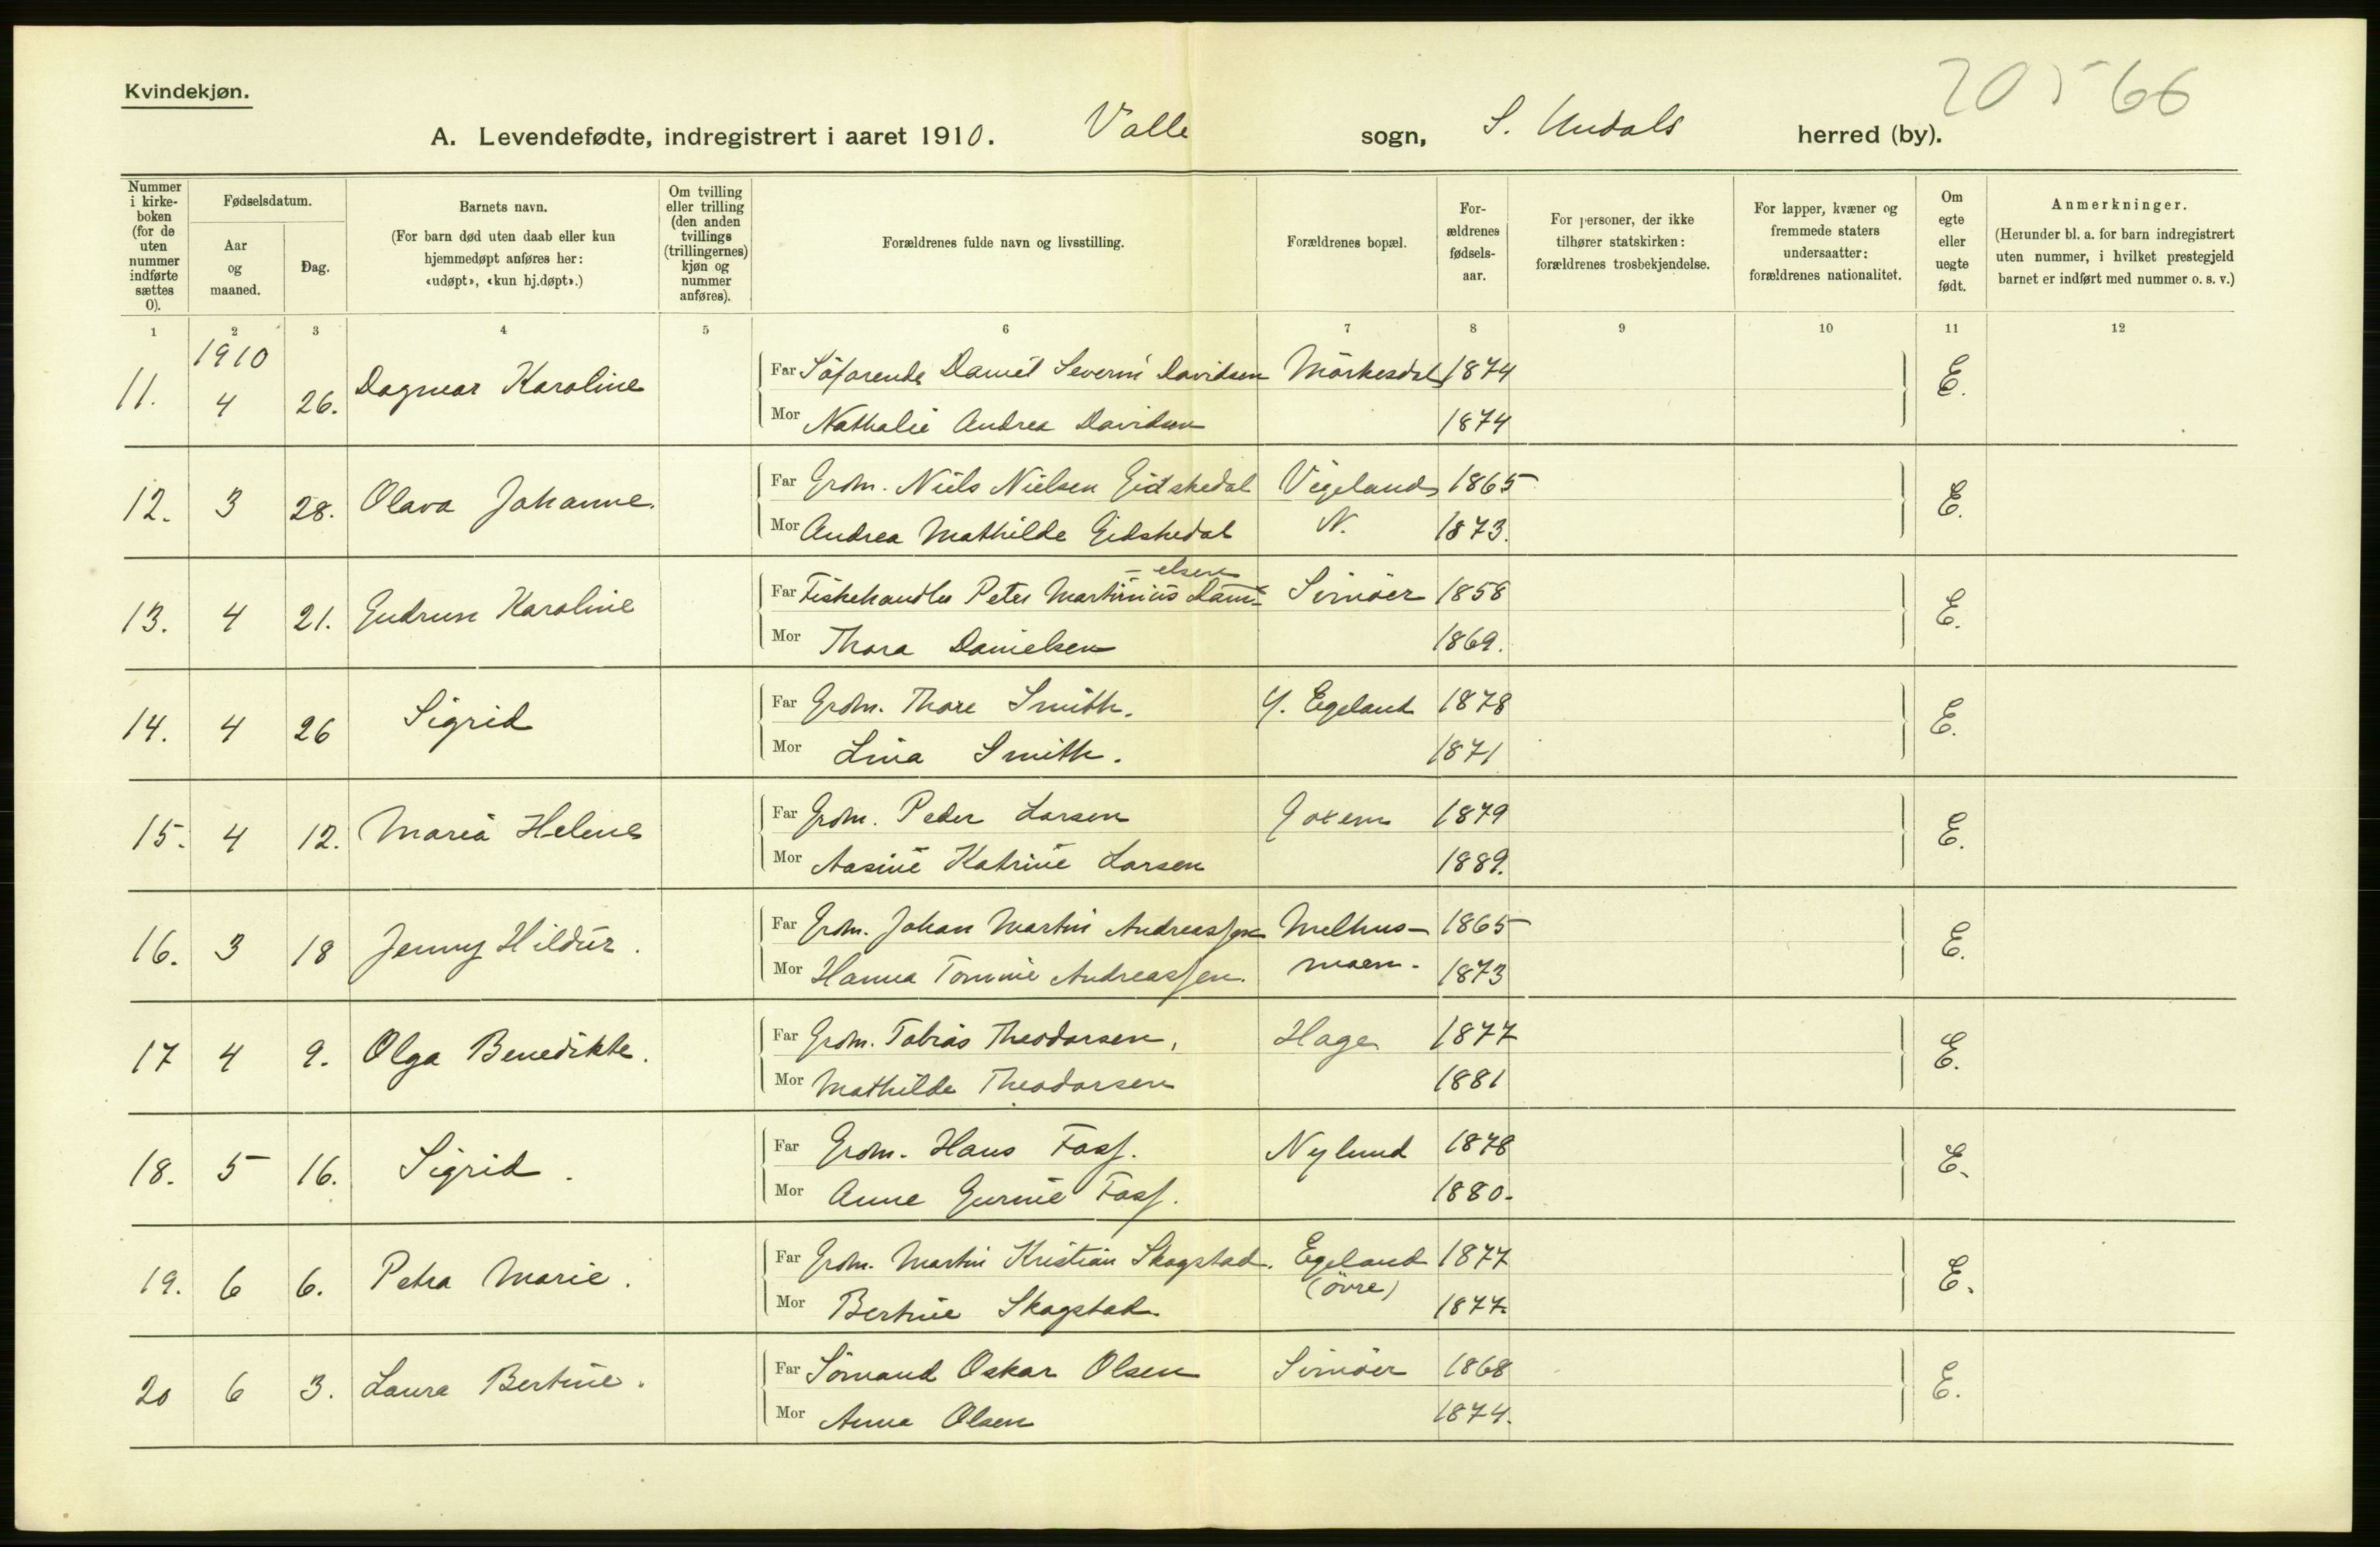 Kvindekjøn.
20566
A. Levendefødte, indregistrert i aaret 1910. Valle sogn, S. Undals herred (by).
Nummer i kirke- boken (for de uten nummer indførte sættes 0).
Fødselsdatum.
Aar og maaned.
Dag.
Barnets navn.
(For barn død uten daab eller kun hjemmedøpt anføres her: «udøpt», «kun hj.døpt».)
Om tvilling eller trilling (den anden tvillings (trillingernes) kjøn og nummer anføres).
Forældrenes fulde navn og livsstilling.
Forældrenes bopæl.
For- ældrenes fødsels- aar.
For personer, der ikke tilhører statskirken: forældrenes trosbekjendelse.
For lapper, kvæner og fremmede staters undersaatter: forældrenes nationalitet.
Om egte eller uegte født.
Anmerkninger.
(Herunder bl. a. for barn indregistrert uten nummer, i hvilket prestegjeld barnet er indført med nummer o. s. v.)
1 2 3 4 5 6 7 8 9 10 11 12
1910
11. 4 26. Dagmar Karoline Far Søfarende Daniel Severin Davidsen Mørkesdal 1874 E.
Mor Nathalie Andrea Davidsen 1874
12. 3 28. Olava Johanne. Far Grdm. Niels Nielsen Eidskedal Vigeland 1865 E.
Mor Andrea Mathilde Eidskedal N. 1873.
13. 4 21. Gudrun Karoline Far Fiskehandler Peter Martinius Dani- -elsen Simøer 1858 E.
Mor Thora Danielsen 1869.
14. 4 26 Sigrid Far Grdm. Thore Smith. Y. Egeland 1878 E.
Mor Lina Smith. 1871
15. 4 12. Maria Helene Far Grdm. Peder Larsen 1879 E.
Mor Aasine Katrine Larsen 1889.
16. 3 18 Jenny Hildur. Far Grdm. Johan Martin Andreassen Melhus- 1865 E.
Mor Hanna Tomine Andreassen. moen. 1873
17 4 9. Olga Benedikte. Far Grdm. Tobias Theodorsen, Hage 1877 E.
Mor Mathilde Theodorsen 1881
18. 5 16. Sigrid. Far Grdm. Hans Foss. Nylund 1878 E.
Mor Anne Gurine Foss. 1880.
19. 6 6. Petra Marie. Far Grdm. Martin Kristian Skogstad. Egeland 1877 E.
(øvre)
Mor Bertine Skogstad 1877.
20 6 3. Laura Bertine. Far Sømand Oskar Olsen Simøer 1868 E.
Mor Anna Olsen 1874.